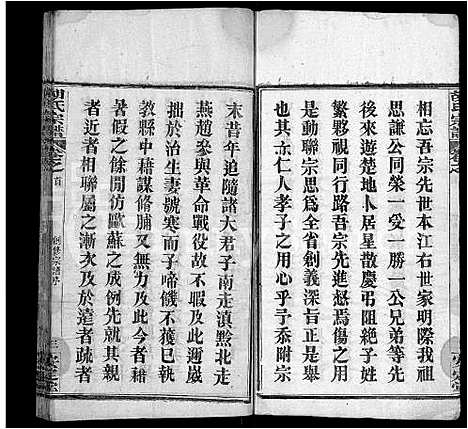 胡氏宗譜
相忘吾宗先世本江右世家明際我
思謙公同榮一受一勝一公兄弟等先
後來遊楚地卜居星散慶弔阻絕子姓
繁夥視同行路吾宗先達怒焉傷之歲
前聯宗思為全省創義深旨正是舉
其亦仁人孝子之用心乎予忝附宗
末昔年追隨諸大君子南走滇黔北走
燕趙參與革命戰役故不及此邇歲
拙於治生妻號寒而子啼饑不獲已執
教縣中藉謀脩脯又無力及此今者藉
暑假之餘閒仿歐蘇之成例先就其親
者近者相聯屬之漸次及於遠者疏者
胡氏宗譜
卷之首
創修宗譜序
三
安定堂